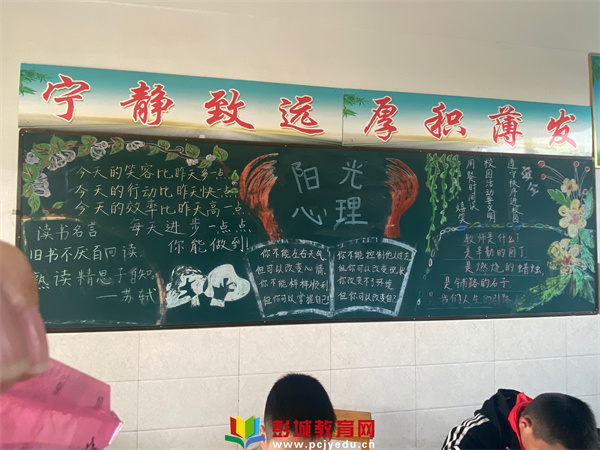 宁静致远 厚积薄发
今天的笑容比昨天多一点
今天的行动比昨天快一点
今天的效率比昨天高一点
每天进步一点点
你能做到!
读书名言
旧书不厌百回读
熟读精思子自知
——苏轼
阳光
心理
你不能左右天气
但可以改变心情
你不能样样顺利
但你可以掌握自己
你不能控制他人
但你可以改变自己
遵守校车进校园
校园活动要文明
用餐时间
教师是什么!
是辛勤的园丁
是燃烧的蜡烛
是铺路的石子
彭城教育网
www.pcjyedu.cn